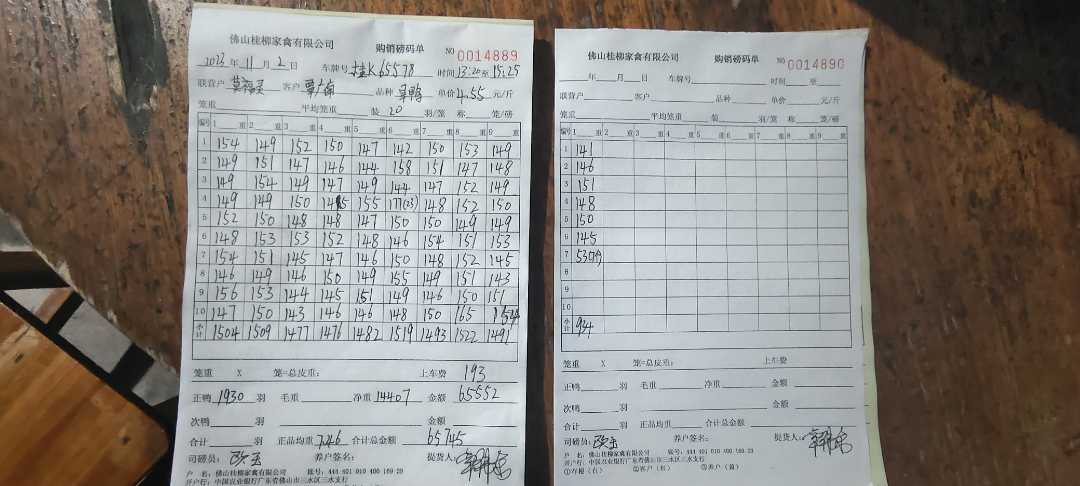 佛山桂柳家禽有限公司 购销磅码单 NO 0014889
2023年11月2日 车牌号 桂K65578 时间13:20至15:25
联营户 客户 品种 单价4.55元/斤
笼重 平均笼重 装20羽/笼 称 笼/磅
编号 1 重 2 重 3 重 4 重 5 重 6 重 7 重 8 重 9 重
1 154 149 152 150 147 142 150 153 149
2 149 151 147 146 144 158 151 147 148
3 149 154 149 147 149 144 147 152 149
4 149 149 150 145 155 177(23) 148 152 150
5 152 150 148 148 147 150 150 149 149
6 148 153 153 152 148 146 154 151 153
7 154 151 145 147 146 150 148 152 145
8 146 149 146 150 149 155 149 151 143
9 156 153 144 145 151 149 146 150 151
10 147 150 143 146 146 148 150 165
小计 1504 1509 1477 1476 1482 1519 1493 1522 1491
笼重 X 笼=总皮重: 上车费 193
正鸭1930羽 毛重 净重14407 金额65552
次鸭 羽 金额
合计 羽 正品均重7.46 合计总金额65745
司磅员: 养户签名: 提货人:
户 名:佛山桂柳家禽有限公司 账号:444 401 010 400 169 29
开户行:中国农业银行广东省佛山市三水区三水支行
佛山桂柳家禽有限公司 购销磅码单 NO 0014890
年 月 日 车牌号 时间 至
联营户 客户 品种 单价 元/斤
笼重 平均笼重 装 羽/笼 称 笼/磅
编号 1 重 2 重 3 重 4 重 5 重 6 重 7 重 8 重 9 重
1 141
2 146
3 151
4 148
5 150
6 145
7
8
9
10
小计 934
笼重 X 笼=总皮重: 上车费
正鸭 羽 毛重 净重 金额
次鸭 羽 金额
合计 羽 正品均重 合计总金额
司磅员: 养户签名: 提货人:
户 名:佛山桂柳家禽有限公司 账号:444 401 010 400 169 29
开户行:中国农业银行广东省佛山市三水区三水支行
①存根(白) ②客户(红) ③养户(黄)